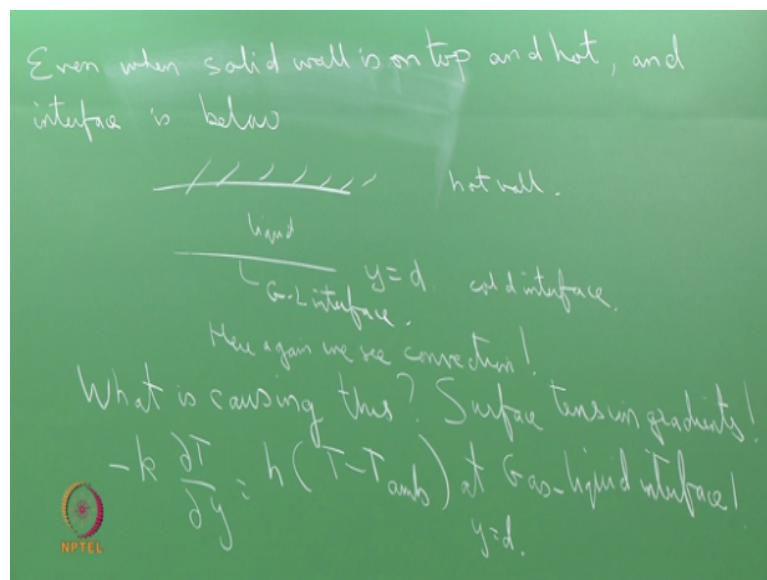 Even when solid wall is on top and hot, and
interface is below
hot wall.
liquid
y=d. cold interface.
G-L interface.
Here again we see convection!
What is causing this? Surface tension gradients!
-k ∂T/∂y = h(T-Tamb) at Gas-liquid interface!
y=d.
NPTEL